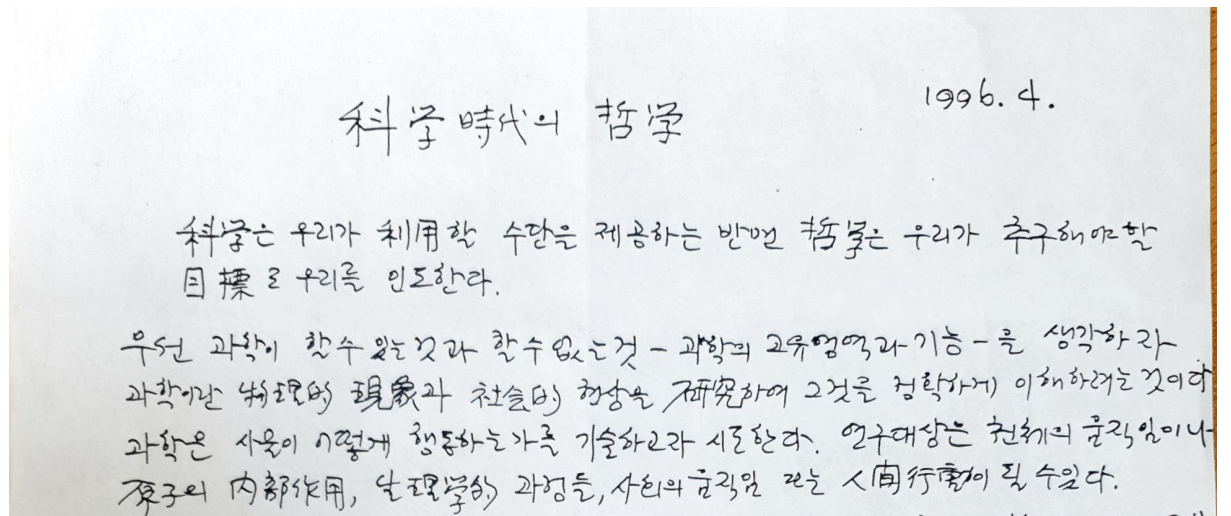 1996. 4.
科学時代의 哲学
科学은 우리가 利用할 수단을 제공하는 반면 哲学은 우리가 추구해야할
目標로 우리를 인도한다.
우선 과학이 할 수 있는 것과 할 수 없는 것 - 과학의 고유영역과 기능 - 을 생각하라
과학이란 物理的 現象과 社会的 현상을 研究하여 그것을 정확하게 이해하려는 것이다
과학은 사물이 어떻게 행동하는가를 기술하고자 시도한다. 연구대상은 천체의 움직임이나
原子의 内部作用, 生理学的 과정들, 사회의 움직임 또는 人间行動이 될 수 있다.